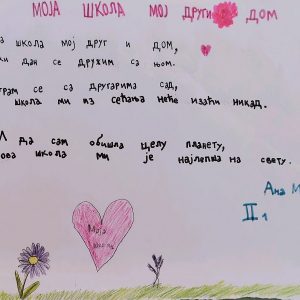 МОЈА ШКОЛА МОЈ ДРУГИ ДОМ
школа мој друг и дом,
дан се дружим са њом.
се са другарима сад,
школа ми из сећања неће изаћи никад.
да сам обишла целу планету,
школа ми је најлепша на свету.
Ана М
II1
Моја
школа